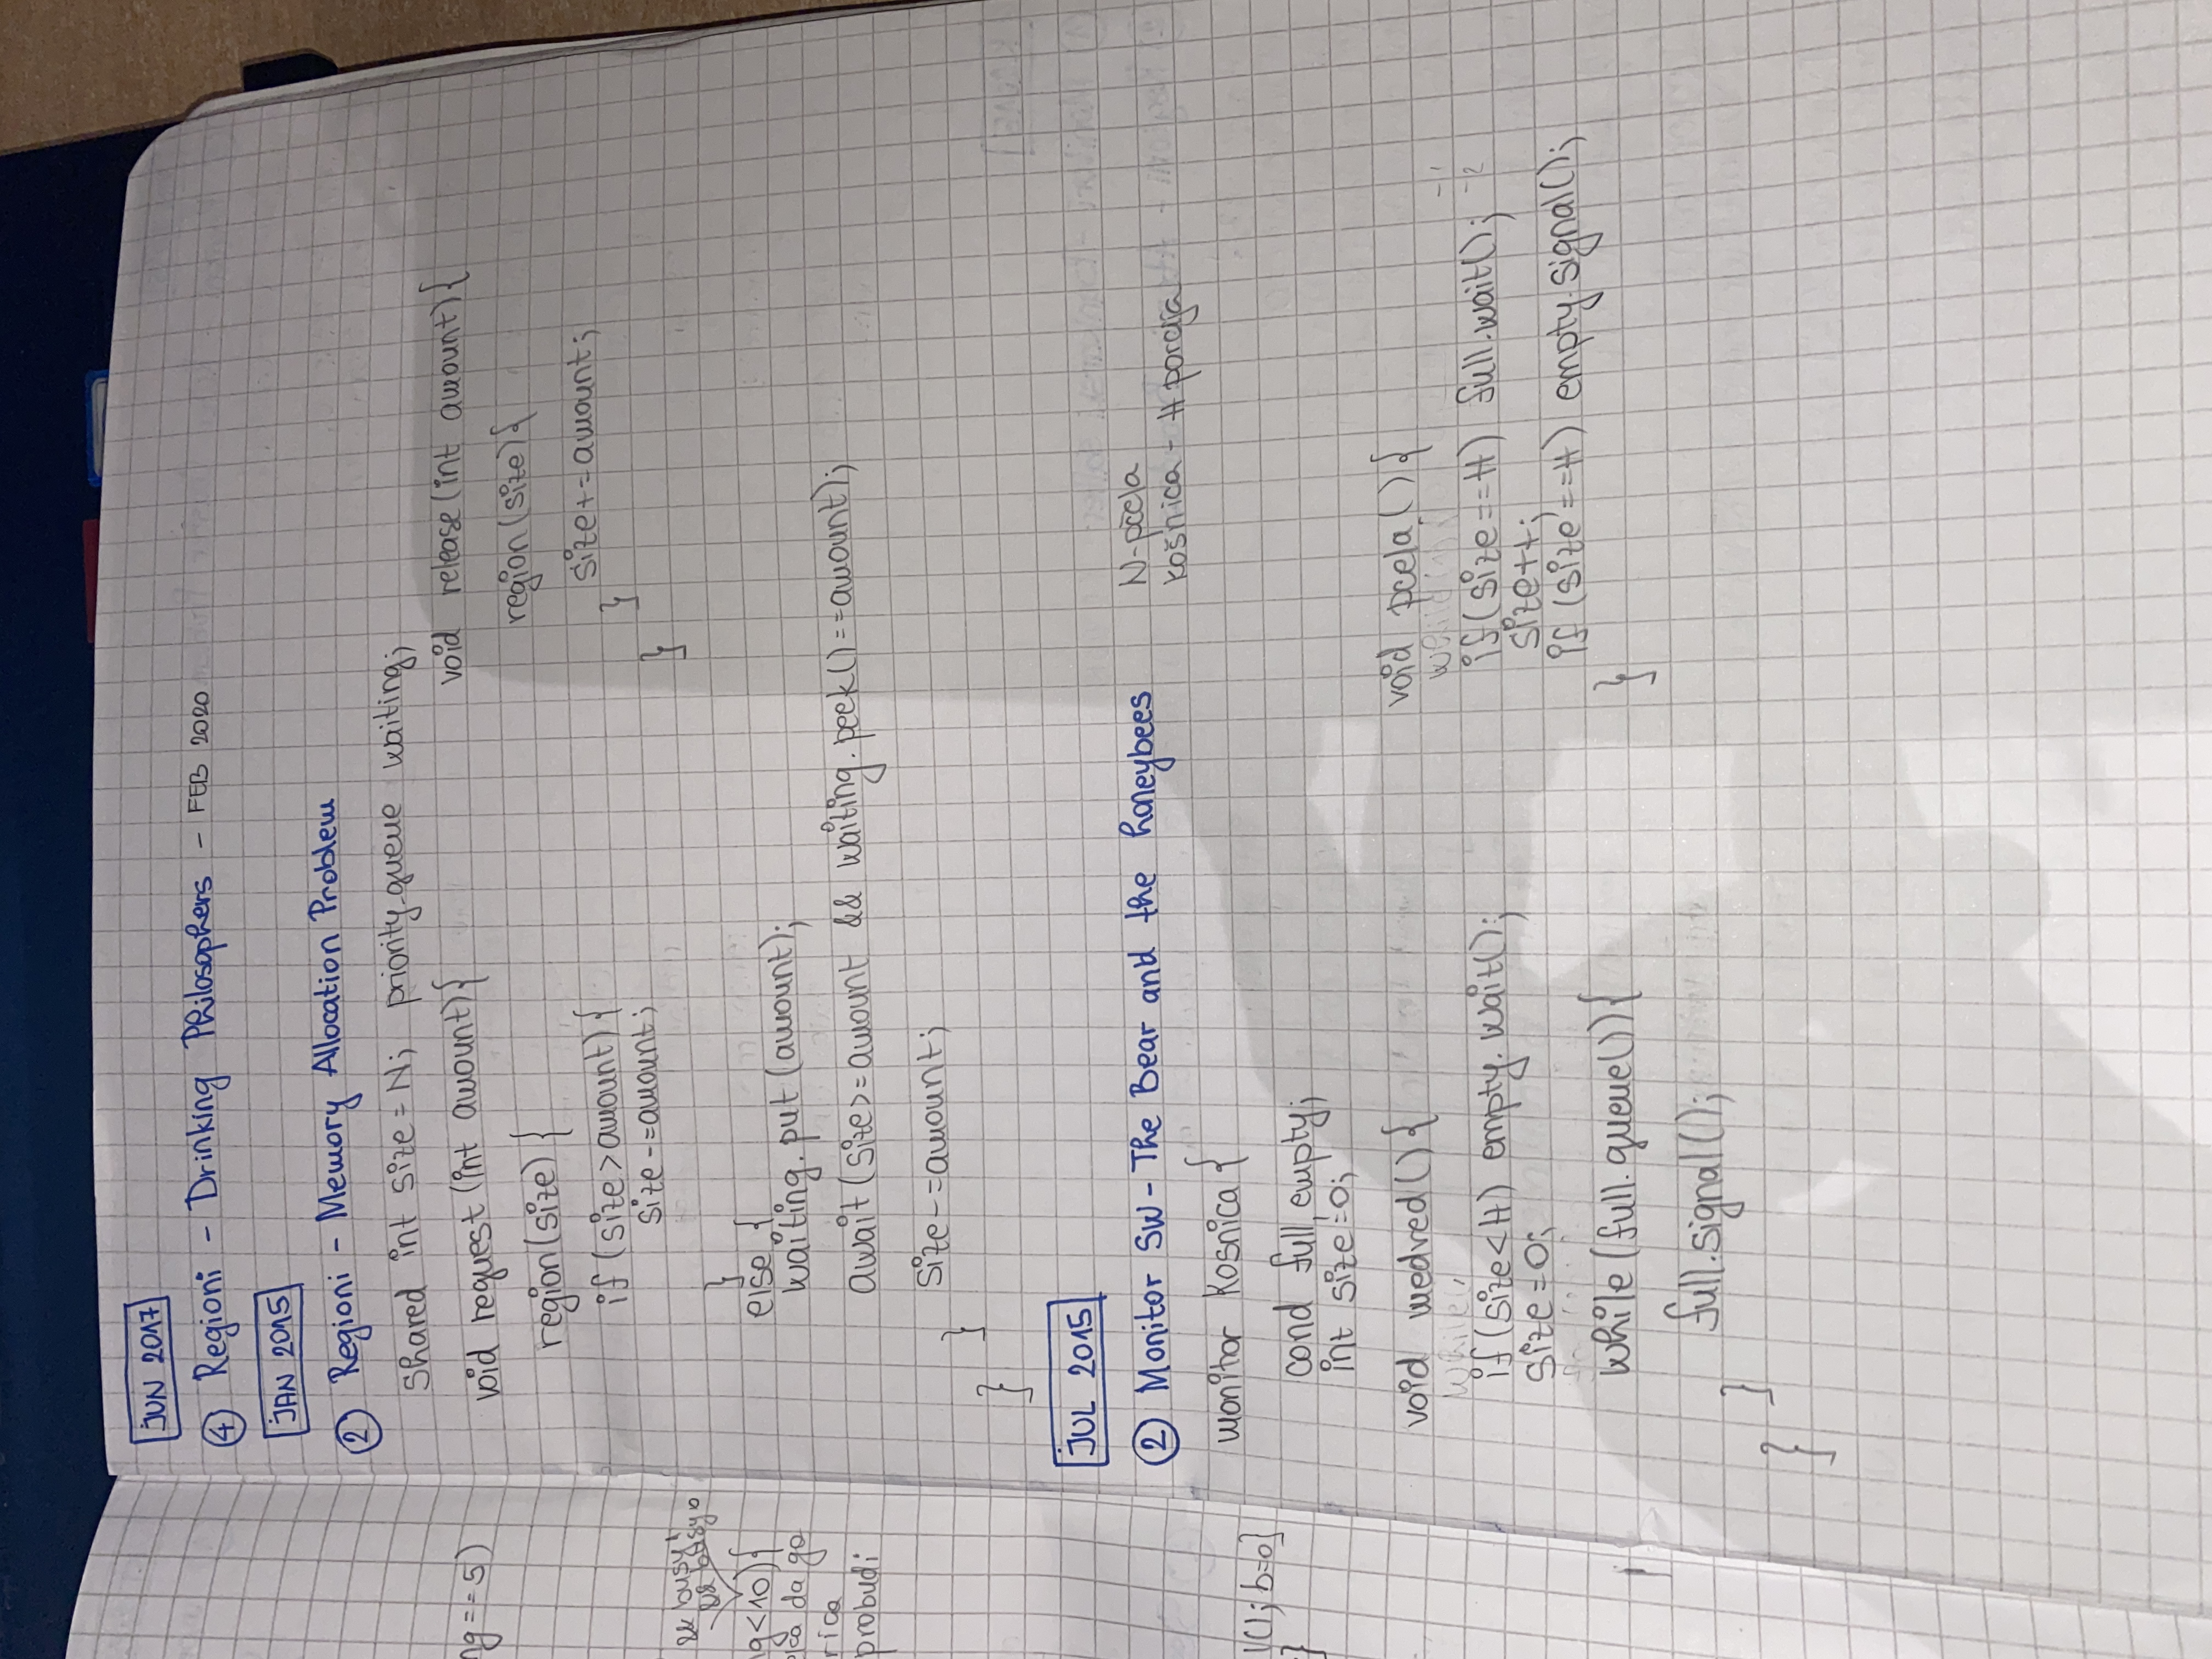 JUN 2017
④ Regioni - Drinking Philosophers - FEB 2020
JAN 2015
② Regioni - Memory Allocation Problem
Shared int size = N; priority-queue waiting;
void request (int amount){
region(size) {
if (size > amount) {
size -= amount;
}
else {
waiting.put (amount);
await (size >= amount && waiting.peek() == amount);
size -= amount;
}
}
void release (int amount) {
region (size) {
size += amount;
}
}
JUL 2015
② Monitor SW - The Bear and the honeybees
N-pcela
košnica - H porcija
monitor Kosnica {
cond full, empty;
int size = 0;
void medved () {
if (size < H) empty.wait();
size = 0;
while (full.queue()) {
full.signal();
}
}
void pcela () {
if (size == H) full.wait();
size++;
if (size == H) empty.signal();
}
ng == 5)
busy
busy
g < 10) {
da go
probudi
b=0]
}